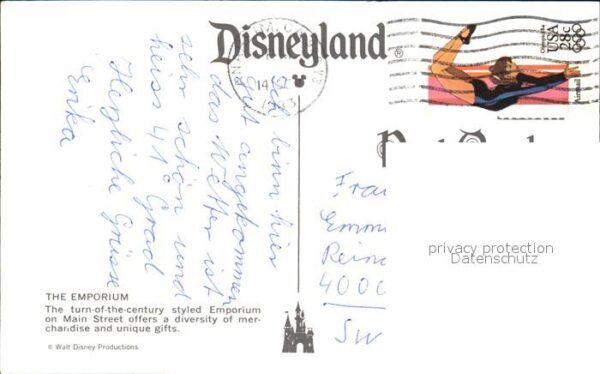 Disneyland®
USA
28c
Olympics 84
Airmail
Ich binn hier
gut angekommen
das Wetter ist
sehr schön und
heiss 41° Grad
Herzliche Grüsse
Erika
Frau
Emm
Rein
4000
SW
privacy protection
Datenschutz
THE EMPORIUM
The turn-of-the-century styled Emporium
on Main Street offers a diversity of mer-
chandise and unique gifts.
© Walt Disney Productions